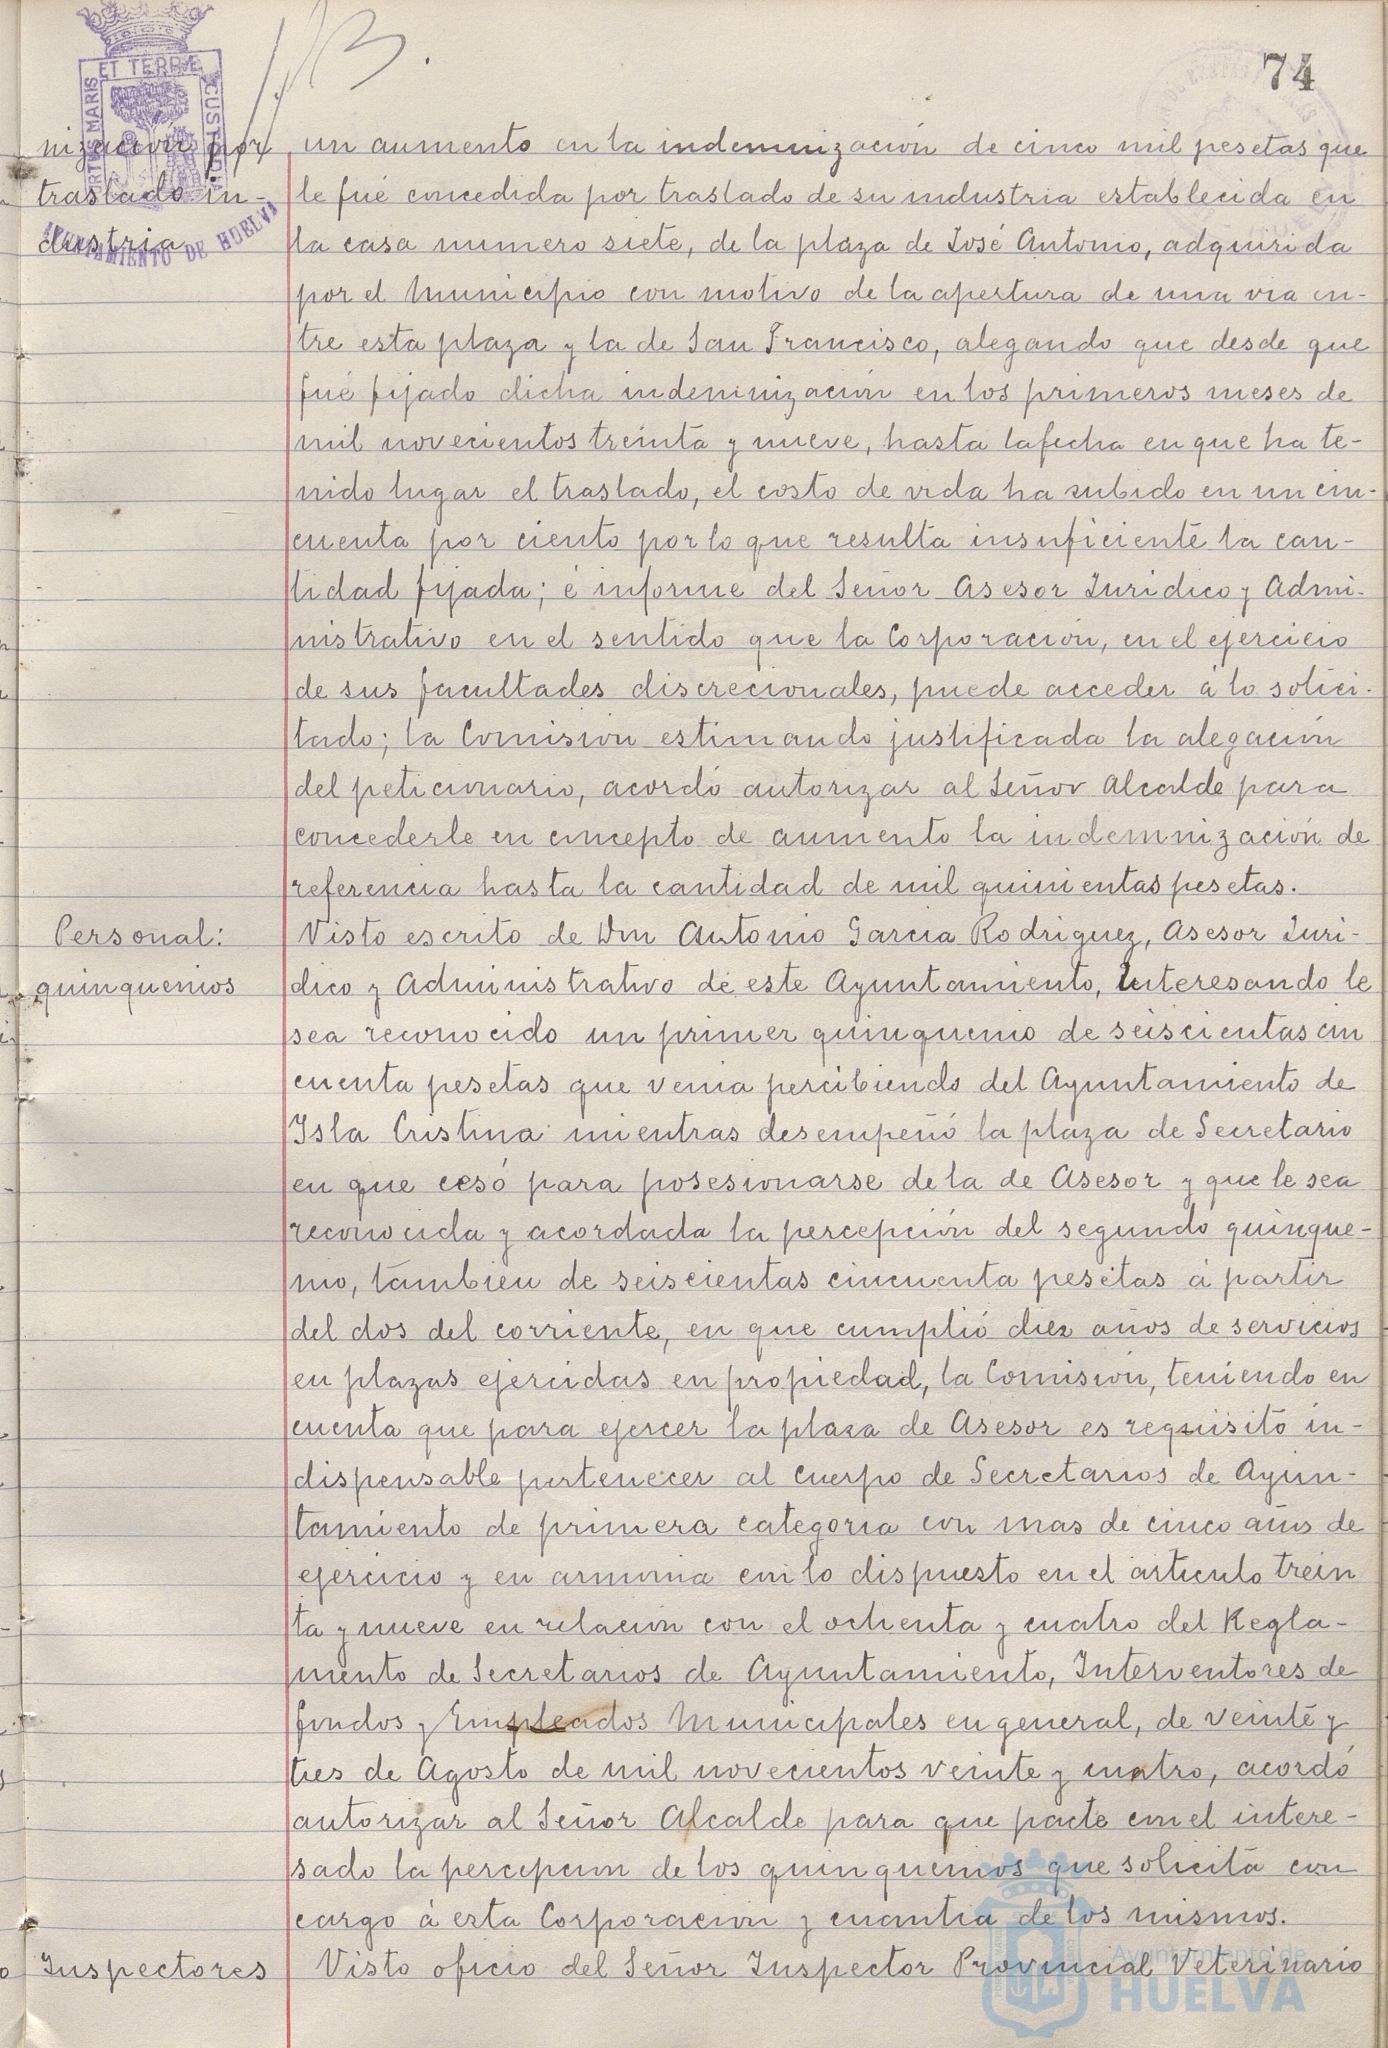 74
B.
ET TERRE
PORTUS MARIS
CUSTODIA
AYUNTAMIENTO DE HUELVA
nización por
traslado in-
dustria
un aumento en la indemnización de cinco mil pesetas que
le fué concedida por traslado de su industria establecida en
la casa numero siete, de la plaza de José Antonio, adquirida
por el Municipio con motivo de la apertura de una via en-
tre esta plaza y la de San Francisco, alegando que desde que
fué fijado dicha indemnización en los primeros meses de
mil novecientos treinta y nueve, hasta la fecha en que ha te-
nido lugar el traslado, el costo de vida ha subido en un cin-
cuenta por ciento por lo que resulta insuficiente la can-
tidad fijada; é informe del Señor Asesor Juridico y Admi-
nistrativo en el sentido que la Corporación, en el ejercicio
de sus facultades discrecionales, puede acceder á lo solici-
tado; la Comision estimando justificada la alegación
del peticionario, acordó autorizar al Señor Alcalde para
concederle en concepto de aumento la indemnización de
referencia hasta la cantidad de mil quinientas pesetas.
Personal:
quinquenios
Visto escrito de Don Antonio Garcia Rodriguez, Asesor Juri-
dico y Administrativo de este Ayuntamiento, interesando le
sea reconocido un primer quinquenio de seiscientas cin
cuenta pesetas que venia percibiendo del Ayuntamiento de
Isla Cristina mientras desempeñó la plaza de Secretario
en que cesó para posesionarse de la de Asesor y que le sea
reconocida y acordada la percepción del segundo quinque-
nio, tambien de seiscientas cincuenta pesetas á partir
del dos del corriente, en que cumplió diez años de servicios
en plazas ejercidas en propiedad, la Comisión, teniendo en
cuenta que para ejercer la plaza de Asesor es requisito in-
dispensable pertenecer al cuerpo de Secretarios de Ayun-
tamiento de primera categoria con mas de cinco años de
ejercicio y en armonia con lo dispuesto en el articulo trein
ta y nueve en relación con el ochenta y cuatro del Regla-
mento de Secretarios de Ayuntamiento, Interventores de
fondos y Empleados Municipales en general, de veinte y
tres de Agosto de mil novecientos veinte y cuatro, acordó
autorizar al Señor Alcalde para que pacte con el intere-
sado la percepcion de los quinquenios que solicita con
cargo á esta Corporacion y cuantia de los mismos.
Inspectores
Visto oficio del Señor Inspector Provincial Veterinario
Ayuntamiento de
HUELVA